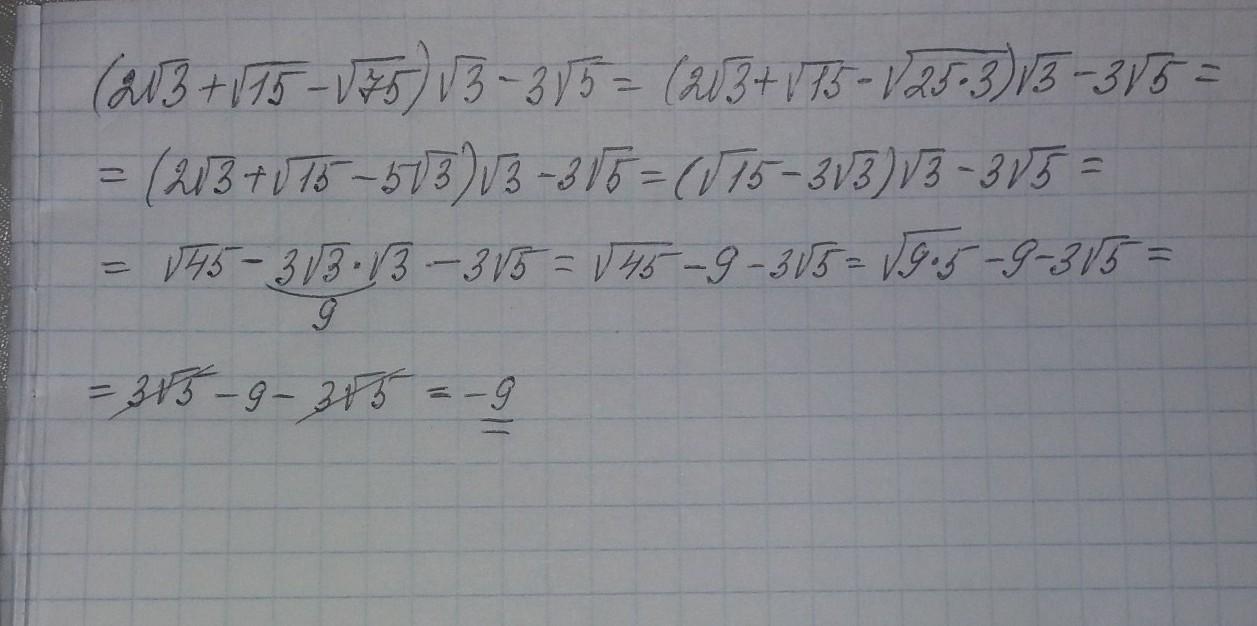 (2√3+√15-√75)√3-3√5= (2√3+√15-√25·3)√3-3√5=
=(2√3+√15-5√3)√3-3√5=(√15-3√3)√3-3√5=
= √45-3√3·√3-3√5=√45-9-3√5=√9·5-9-3√5=
9
=3√5-9-3√5 =-9